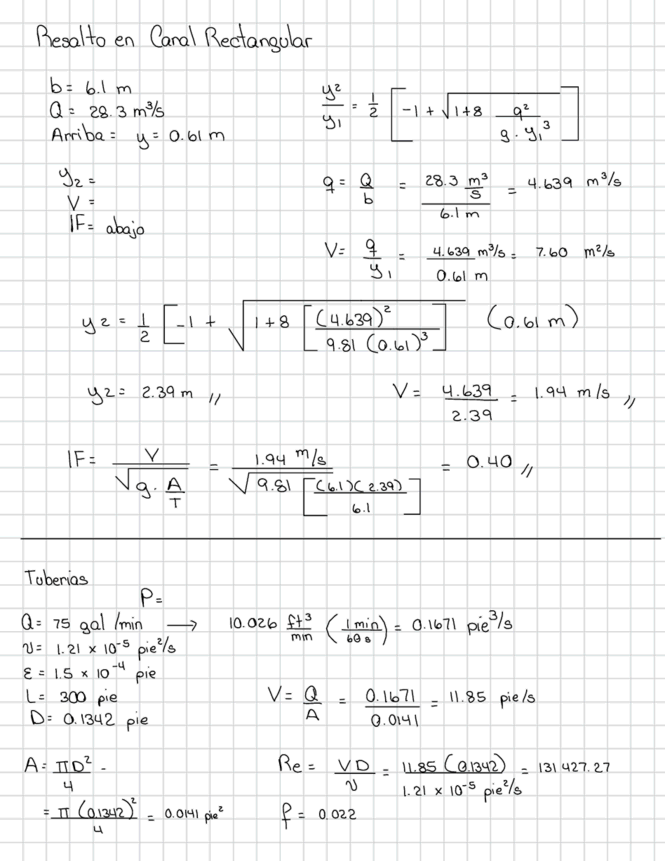 Resalto en Canal Rectangular
b = 6.1 m
Q = 28.3 m³/s
Arriba = y = 0.61 m
y2/y1 = 1/2 [-1 + √(1+8 q²/(g · y1³))]
y2 =
V =
IF = abajo
q = Q/b = (28.3 m³/s)/(6.1 m) = 4.639 m³/s
V = q/y1 = (4.639 m³/s)/(0.61 m) = 7.60 m²/s
y2 = 1/2 [-1 + √(1+8 [(4.639)²/(9.81 (0.61)³)])] (0.61 m)
y2 = 2.39 m //
V = 4.639/2.39 = 1.94 m/s //
IF = V/√(g · A/T) = (1.94 m/s)/√(9.81 [(6.1)(2.39)/6.1]) = 0.40 //
Tuberias
P =
Q = 75 gal/min → 10.026 ft³/min (1 min/60 s) = 0.1671 pie³/s
ν = 1.21 × 10⁻⁵ pie²/s
ε = 1.5 × 10⁻⁴ pie
L = 300 pie
D = 0.1342 pie
V = Q/A = 0.1671/0.0141 = 11.85 pie/s
A = πD²/4 -
= π(0.1342)²/4 = 0.0141 pie²
Re = VD/ν = 11.85 (0.1342)/(1.21 × 10⁻⁵ pie²/s) = 131 427.27
f = 0.022